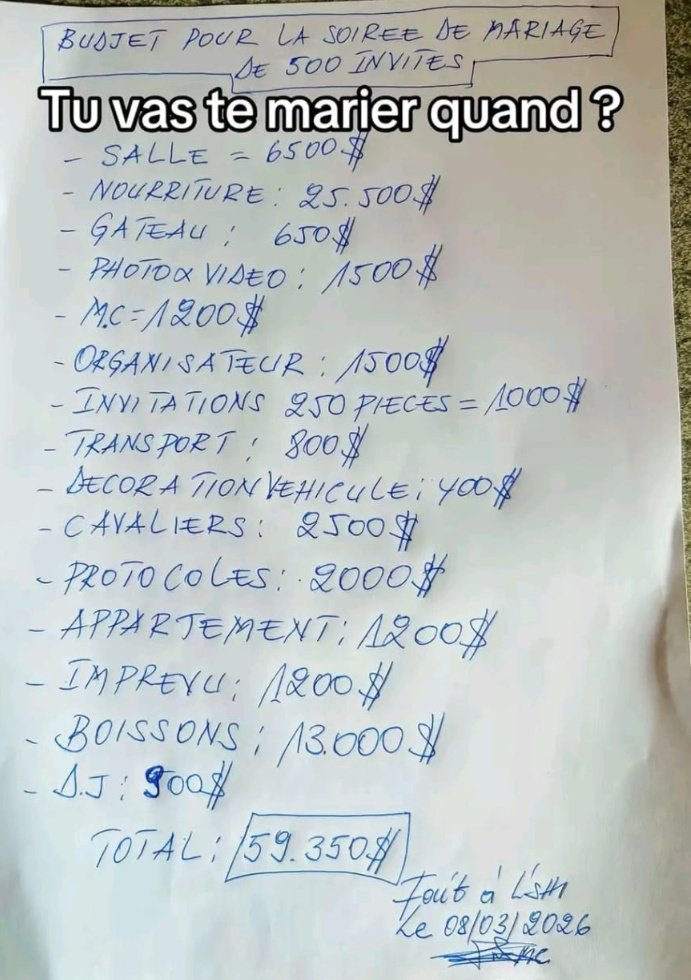 BUDJET POUR LA SOIREE DE MARIAGE
DE 500 INVITES
Tu vas te marier quand ?
- SALLE = 6500$
- NOURRITURE : 25.500$
- GATEAU : 650$
- PHOTO & VIDEO : 1500$
- M.C = 1200$
- ORGANISATEUR : 1500$
- INVITATIONS 250 PIECES = 1000$
- TRANSPORT : 800$
- DECORATION VEHICULE : 400$
- CAVALIERS : 2500$
- PROTOCOLES : 2000$
- APPARTEMENT : 1200$
- IMPREVU : 1200$
- BOISSONS : 13.000$
- D.J : 900$
TOTAL : 59.350$
Fait à L'shi
Le 08/03/2026